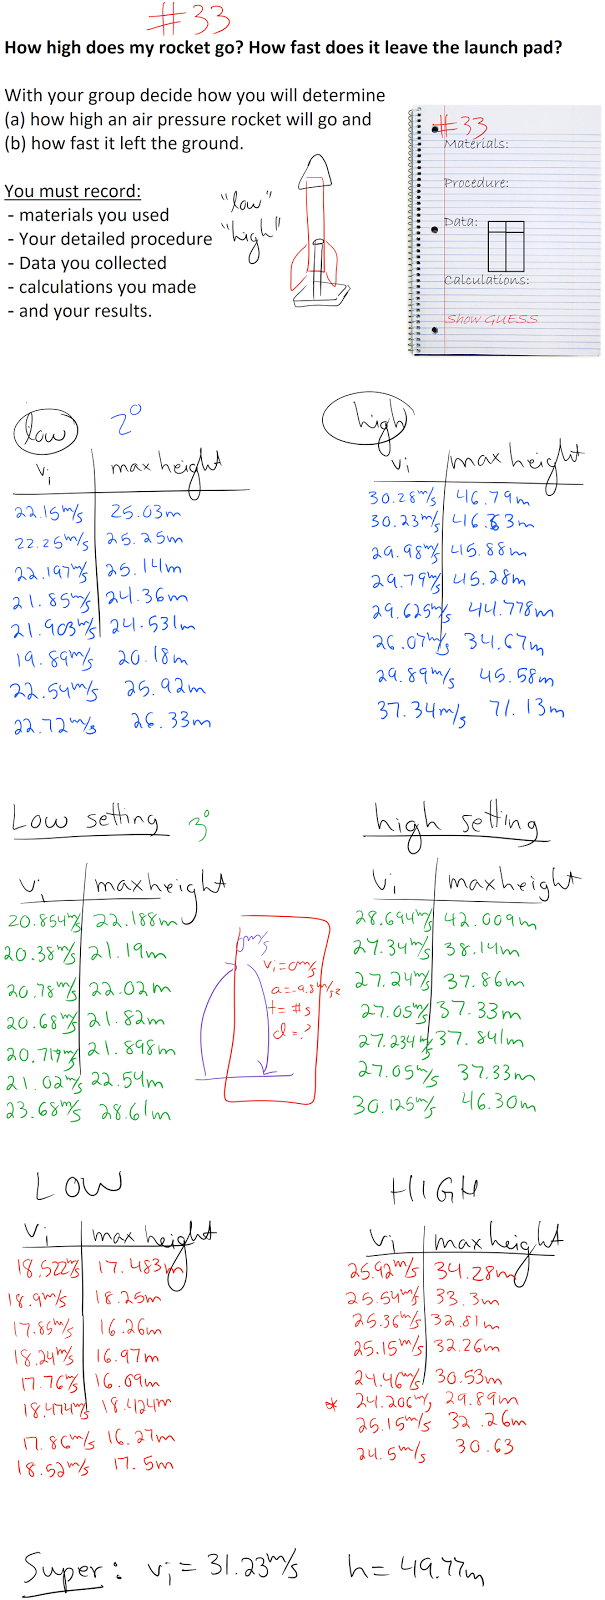 #33
How high does my rocket go? How fast does it leave the launch pad?
With your group decide how you will determine
(a) how high an air pressure rocket will go and
(b) how fast it left the ground.
You must record:
- materials you used
- Your detailed procedure
- Data you collected
- calculations you made
- and your results.
"low"
"high"
#33
Materials:
Procedure:
Data:
Calculations:
Show GUESS
low 2°
vi max height
22.15m/s 25.03m
22.25m/s 25.25m
22.197m/s 25.14m
21.85m/s 24.36m
21.903m/s 24.531m
19.89m/s 20.18m
22.54m/s 25.92m
22.72m/s 26.33m
high
vi max height
30.28m/s 46.79m
30.23m/s 46.63m
29.98m/s 45.88m
29.79m/s 45.28m
29.625m/s 44.778m
26.07m/s 34.67m
29.89m/s 45.58m
37.34m/s 71.13m
Low setting 3°
vi max height
20.854m/s 22.188m
20.38m/s 21.19m
20.78m/s 22.02m
20.68m/s 21.82m
20.717m/s 21.898m
21.02m/s 22.54m
23.68m/s 28.61m
0m/s
vi=0m/s
a=-9.8m/s2
t=#s
d=?
high setting
vi max height
28.694m/s 42.009m
27.34m/s 38.14m
27.24m/s 37.86m
27.05m/s 37.33m
27.234m/s 37.841m
27.05m/s 37.33m
30.125m/s 46.30m
LOW
vi max height
18.522m/s 17.483m
18.9m/s 18.25m
17.85m/s 16.26m
18.24m/s 16.97m
17.76m/s 16.09m
18.474m/s 18.424m
17.86m/s 16.27m
18.52m/s 17.5m
HIGH
vi max height
25.92m/s 34.28m
25.54m/s 33.3m
25.36m/s 32.81m
25.15m/s 32.26m
24.46m/s 30.53m
* 24.206m/s 29.89m
25.15m/s 32.26m
24.5m/s 30.63
Super: vi = 31.23m/s h= 49.77m